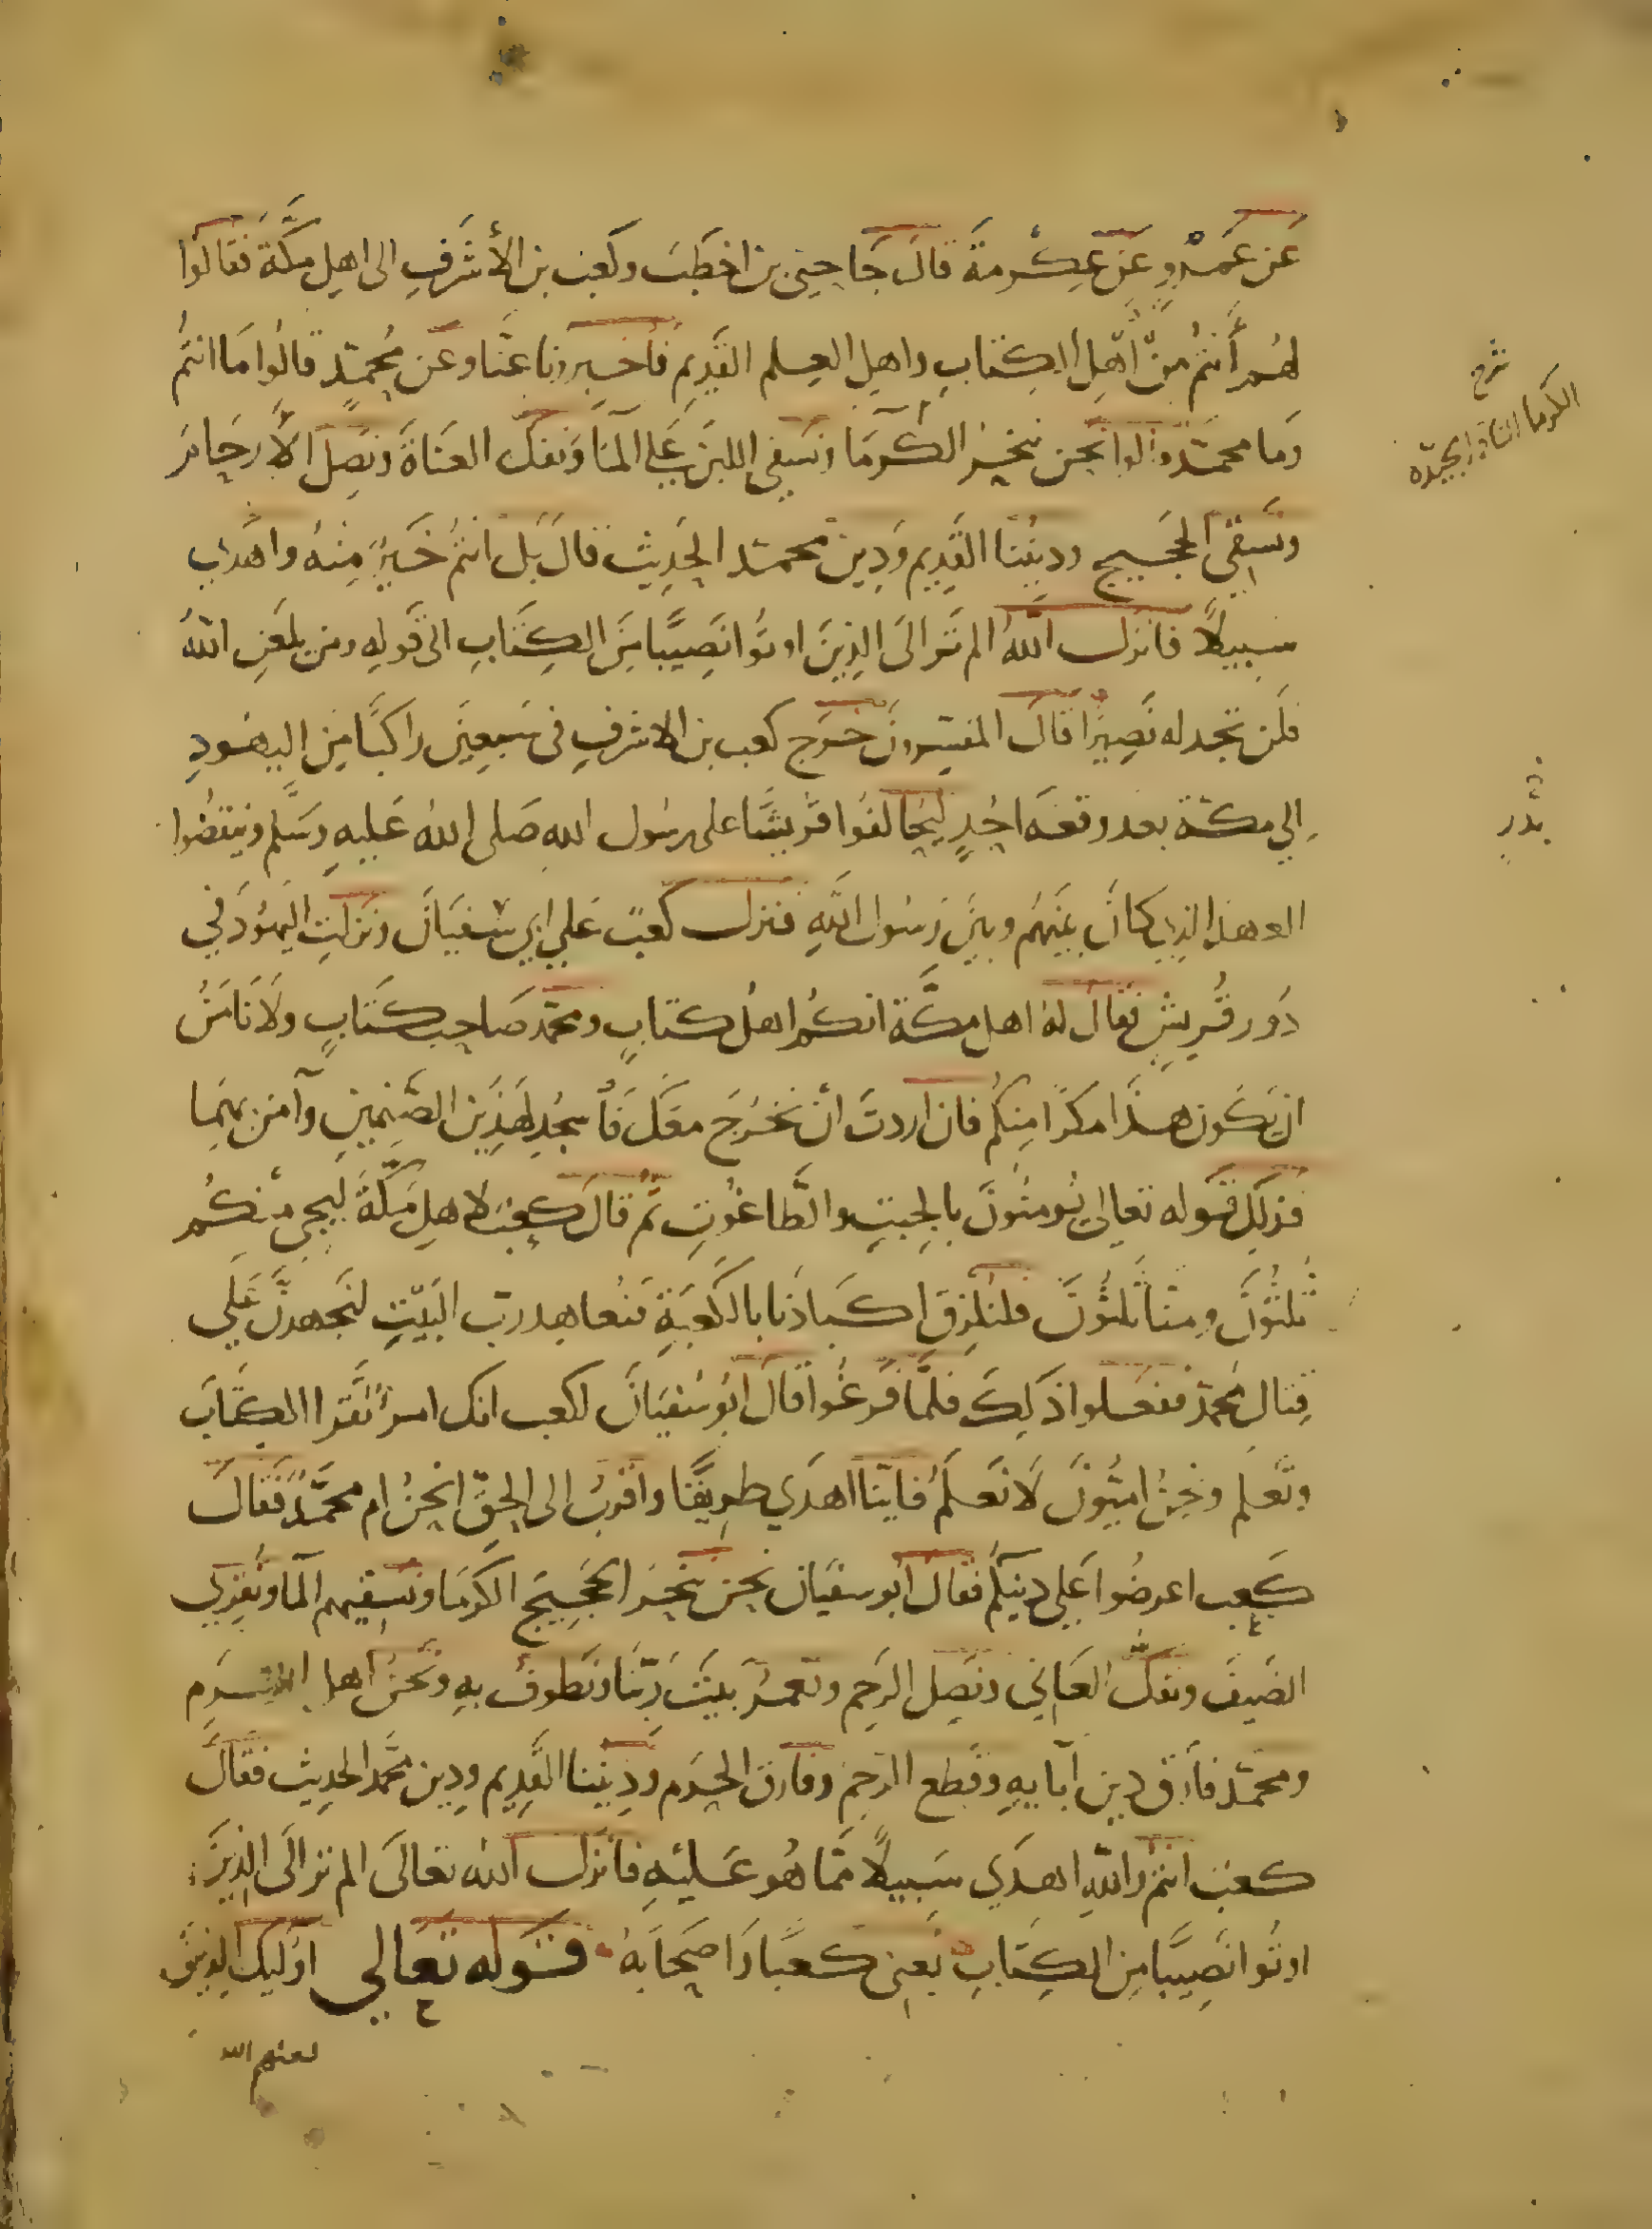 عَن عَمْرٍو عَن عِكْرِمةَ قالَ جَا حيى بن اخطَبَ وكَعب بن الأشرَفِ الى اهلِ مكَّةَ فقالوُا
لهُم أنتُم مِنْ اهْلِ الكِتابِ واهلِ العِلم القَدِيم فاخبرونا عَنَّا وعَن مُحمّدٍ قالوُا مَا انتُم
ومَا محمّد قالوا نحن ننحَرُ الكَومَا ونَسقي اللبَن عَلى المَآ ونَفكُّ العنَاةَ ونَصِل الأرحَامَ
ونَسقى الحجيج ودينُنا القَدِيم ودِين محمّد الحَدِيث قال بَل انتُم خَيرٌ مِنهُ واهدَى
سبيلاً فانزل اللهُ الم تَر الَى الذِينَ اوتوُا نَصِيبًا مِنَ الكِتَابِ الى قَولِهِ ومن يلعَنِ اللهُ
فلَن تجد له نَصِيرًا قالَ المفسّرونَ خرَج كعب بن الاشرفِ فى سَبعِينَ راكبًا مِنَ اليهُودِ
الي مكة بعد وقعَة احُدٍ ليُحَالفوُا قُريشًا على رسُول اللهِ صَلى اللهُ عَليهِ وسَلَّم وينقضُوا
العهد الذِي كانَ بينَهُم وبينَ رَسُول اللهِ فنزل كعبٌ عَلي ابي سُفيَانَ ونزلتِ اليَهُودُ في
دُور قُريشٍ فقالَ لهُ اهل مكَّة انكُم اهلُ كتابٍ ومحمّد صَاحب كتَابٍ ولا نَامَنُ
ان يَكون هذَا مكرًا مِنكُم فان اردتَ انْ نَخرُجَ معَكَ فأسجُد لهذَين الصَّنمينِ وآمن بهمَا
فذلِكَ قَوله تعالى يُومنُونَ بالجِبتِ والطَّاغُوتِ ثم قالَ كعبٌ لاهلِ مَكَّةَ ليجي مِنكُم
ثلثوُنَ ومِنَّا ثلثُونَ فلنلزق اكبادَنا بالكعبَةِ فنُعاهِد ربّ البَيتِ لنَجهدَنَّ عَلَي
قِتال مُحمّد ففعَلوا ذَلِكَ فلمَّا فرَغُوا قالَ ابُو سُفيَانَ لكعب انك امرؤٌ تقرا الكتَابَ
وتَعلَم ونحنُ امّيُّونَ لا نَعلَمُ فايّنا اهدَي طرِيقًا واقرَبُ الى الحقِّ انحنُ ام محمَّدٌ فقالَ
كعب اعرضُوا عَلي دِينَكُم فقال ابُو سفيَان نحن ننحَرُ للحَجِيجِ الكَومَا ونَسقِيهم المآ ونقرِي
الضَيفَ ونفكُّ العَانِي ونَصِل الرَحِم ونعمُر بَيتَ ربّنَا ونَطوف بهِ ونَحنُ اهل الحَرَمِ
ومحمّد فارَق دين آبايهِ وقطع الرَحِمَ وفارق الحَرَم ودِيننا القَدِيم ودِين محَّمد الحدِيث فقالَ
كعب انتُم واللهِ اهدَي سَبيلاً ممَّا هُو عَليهِ فانزَل اللهُ تعالَى الم تر الَى الذِينَ
اوتُوا نَصِيبًا مِن الكِتَابِ يَعني كعبًا واصحَابَهُ قَوله تعَالي اوليك الذِينَ
لعنهم الله
شرح
الكوما الناقة الجيدة
بَدْر